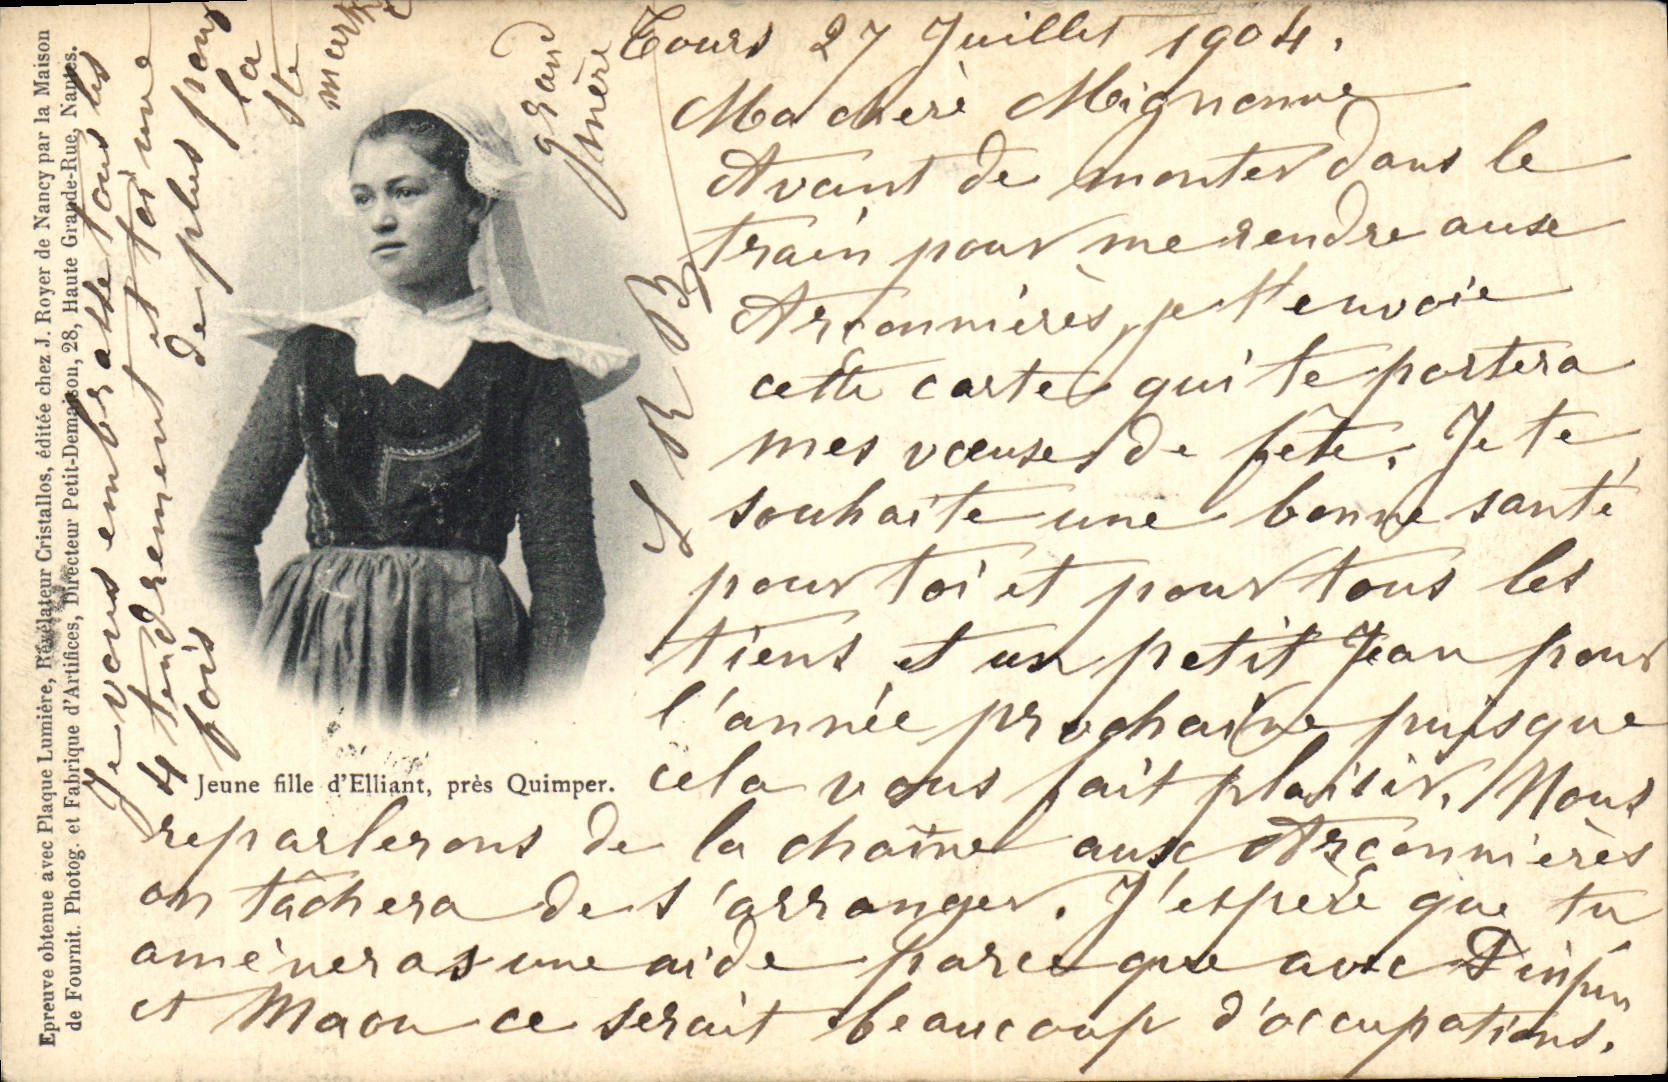 Tours 27 Juillet 1904.
Ma cherè Mignonne
Avant de monter dans le
train pour me rendre aux
Arçonnières, je t'envoie
cette carte qui te portera
mes vœux de fête. Je te
souhaite une bonne santé
pour toi et pour tous les
tiens et un petit Jean pour
l'année prochaine puisque
cela vous fait plaisir. Nous
reparlerons de la chaîne aux Arçonnières
on tâchera de s'arranger. J'espère que tu
amèneras une aide parce que avec
et ce serait beaucoup d'occupations.
Je vous embrasse tous les
4 tendrement et toi une
fois de plus pour
la
Ste
Marthe
grand
mère
Jeune fille d'Elliant, près Quimper.
Epreuve obtenue avec Plaque Lumière, Révélateur Cristallos, éditée chez J. Royer de Nancy par la Maison
de Fournit. Photog. et Fabrique d'Artifices, Directeur Petit-Demaison, 28, Haute Grande-Rue, Nantes.